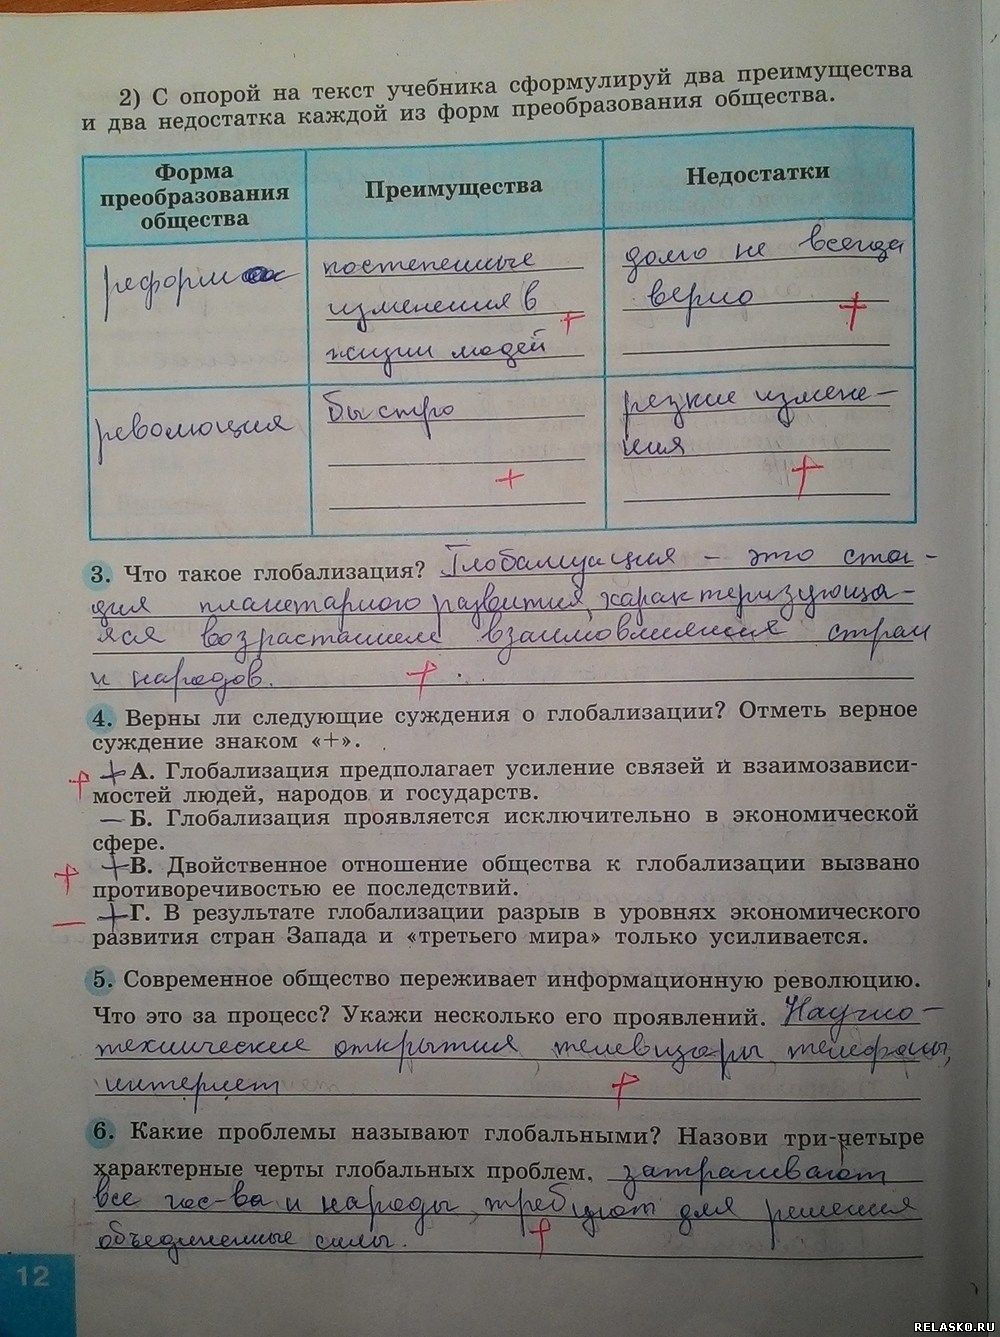 2) С опорой на текст учебника сформулируй два преимущества
и два недостатка каждой из форм преобразования общества.
Форма
преобразования
общества
Преимущества
Недостатки
реформ
постепенные
изменения в
жизни людей
+
долго не всегда
верно
+
революция
быстро
+
резкие измене-
ния
+
3. Что такое глобализация? Глобализация – это ста-
дия планетарного развития, характеризующа-
яся возрастанием взаимовлияния стран
и народов.
+
4. Верны ли следующие суждения о глобализации? Отметь верное
суждение знаком «+».
+ + А. Глобализация предполагает усиление связей и взаимозависи-
мостей людей, народов и государств.
— Б. Глобализация проявляется исключительно в экономической
сфере.
+ + В. Двойственное отношение общества к глобализации вызвано
противоречивостью ее последствий.
— + Г. В результате глобализации разрыв в уровнях экономического
развития стран Запада и «третьего мира» только усиливается.
5. Современное общество переживает информационную революцию.
Что это за процесс? Укажи несколько его проявлений. Научно-
технические открытия, телевизоры, телефоны,
интернет
+
6. Какие проблемы называют глобальными? Назови три-четыре
характерные черты глобальных проблем. затрагивают
все гос-ва и народы, требуют для решения
объединенные силы.
+
12
RELASKO.RU